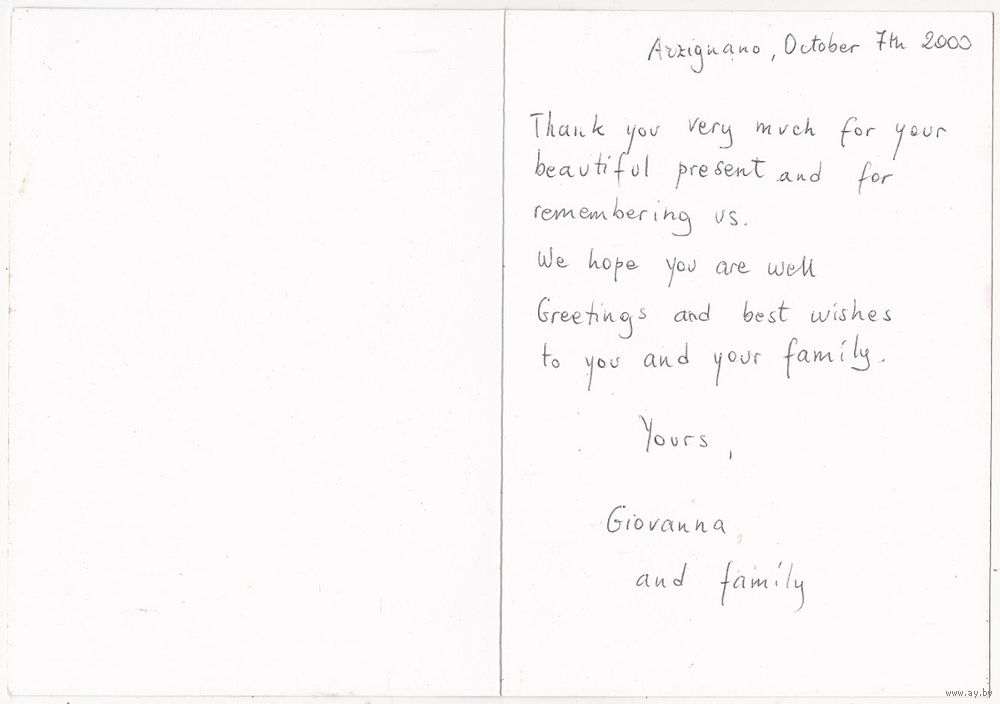 Arzignano, October 7th 2000
Thank you very much for your
beautiful present and for
remembering us.
We hope you are well
Greetings and best wishes
to you and your family.
Yours,
Giovanna
and family
www.ay.by